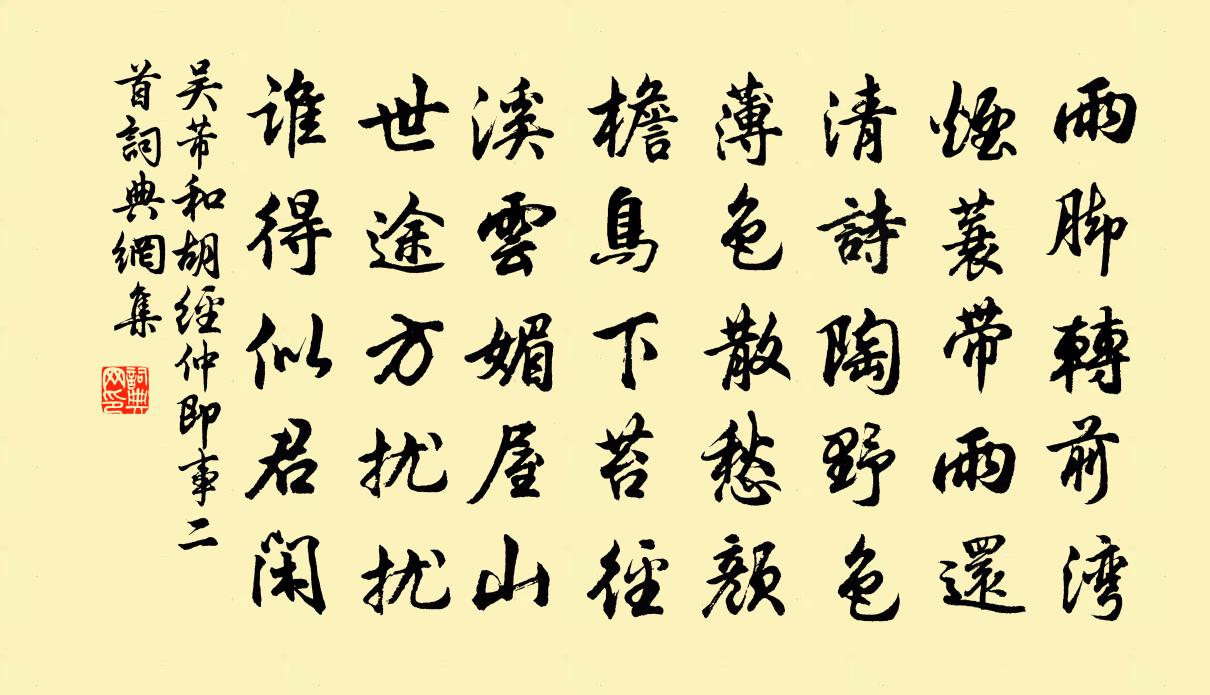 雨脚轉前湾
煙蓑带雨還
清詩陶野色
薄色散愁顔
檐鳥下苔徑
溪雲媚屋山
世途方扰扰
谁得似君闲
吴芾和胡經仲即事二
首詞典網集
詞典
网印